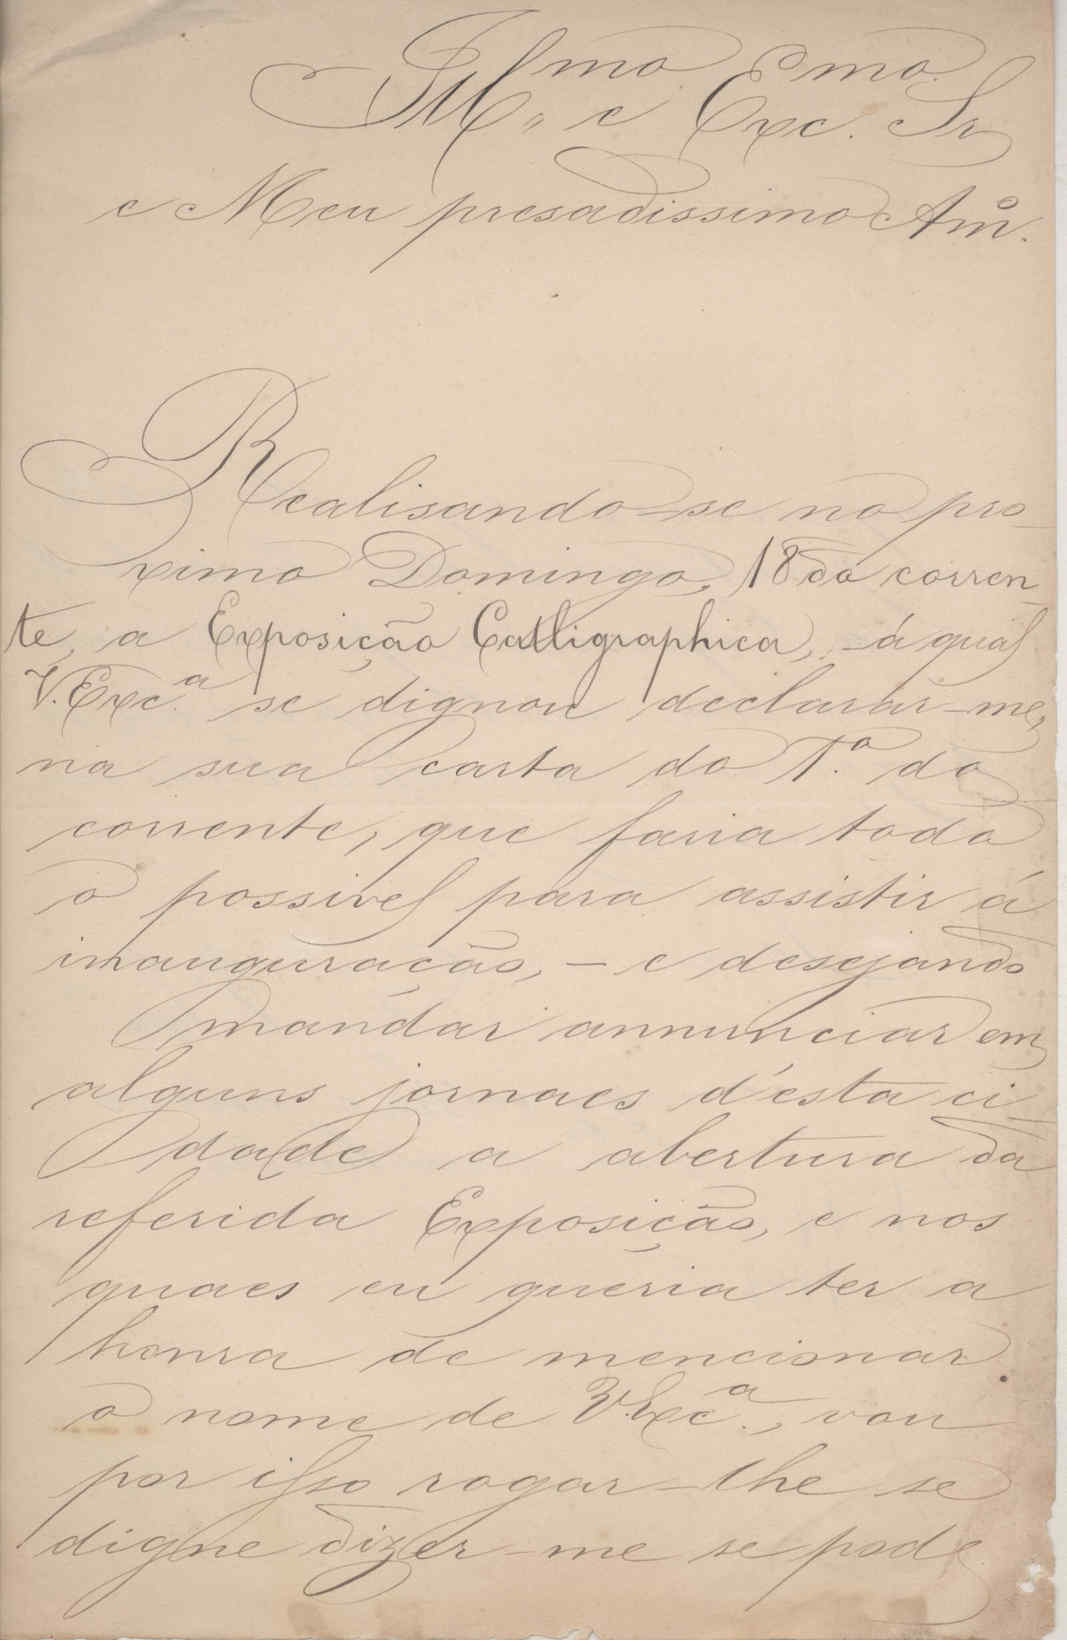 Ill.mo e Exc.mo Sr
e Meu presadissimo Am.º
Realisando-se no pro-
ximo Domingo, 18 do corren-
te, a Exposição Calligraphica, - á qual
V. Exc.ª se dignou declarar-me,
na sua carta do 1.º do
corrente, que faria todo
o possivel para assistir á
inauguração, - e desejando
mandar annunciar em
alguns jornaes d'esta ci-
dade a abertura da
referida Exposição, e nos
quaes eu queria ter a
honra de mencionar
o nome de V. Exc.ª, vou
por isso rogar-lhe se
digne dizer-me se pode